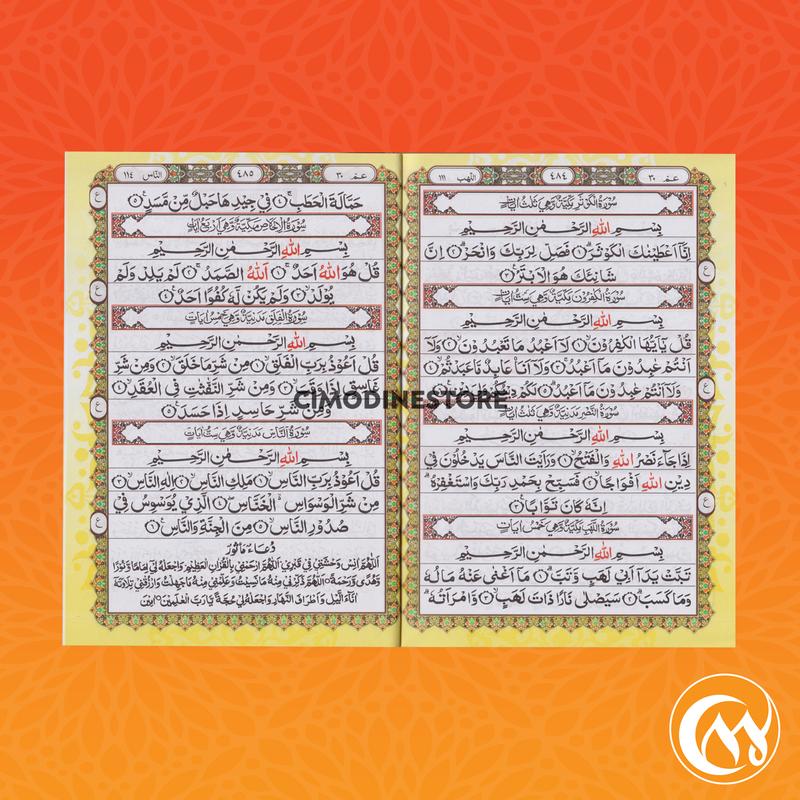 عـمّ ٣٠
٤٨٤
اللهب ١١١
سُوْرَةُ الْكَوْثَرِ مَكِّيَّةٌ وَهِيَ ثَلٰثُ اٰيَاتٍ
بِسْمِ اللهِ الرَّحْمٰنِ الرَّحِيْمِ
اِنَّآ اَعْطَيْنٰكَ الْكَوْثَرَ ۝١ فَصَلِّ لِرَبِّكَ وَانْحَرْ ۝٢ اِنَّ
شَانِئَكَ هُوَ الْاَبْتَرُ ۝٣
سُوْرَةُ الْكٰفِرُوْنَ مَكِّيَّةٌ وَهِيَ سِتُّ اٰيَاتٍ
بِسْمِ اللهِ الرَّحْمٰنِ الرَّحِيْمِ
قُلْ يٰٓاَيُّهَا الْكٰفِرُوْنَ ۝١ لَآ اَعْبُدُ مَا تَعْبُدُوْنَ ۝٢ وَلَآ
اَنْتُمْ عٰبِدُوْنَ مَآ اَعْبُدُ ۝٣ وَلَآ اَنَا۠ عَابِدٌ مَّا عَبَدْتُّمْ ۝٤
وَلَآ اَنْتُمْ عٰبِدُوْنَ مَآ اَعْبُدُ ۝٥ لَكُمْ دِيْنُكُمْ وَلِيَ دِيْنِ ۝٦
سُوْرَةُ النَّصْرِ مَدَنِيَّةٌ وَهِيَ ثَلٰثُ اٰيَاتٍ
بِسْمِ اللهِ الرَّحْمٰنِ الرَّحِيْمِ
اِذَا جَآءَ نَصْرُ اللهِ وَالْفَتْحُ ۝١ وَرَاَيْتَ النَّاسَ يَدْخُلُوْنَ فِيْ
دِيْنِ اللهِ اَفْوَاجًا ۝٢ فَسَبِّحْ بِحَمْدِ رَبِّكَ وَاسْتَغْفِرْهُ
اِنَّهٗ كَانَ تَوَّابًا ۝٣
سُوْرَةُ اللَّهَبِ مَكِّيَّةٌ وَهِيَ خَمْسُ اٰيَاتٍ
بِسْمِ اللهِ الرَّحْمٰنِ الرَّحِيْمِ
تَبَّتْ يَدَآ اَبِيْ لَهَبٍ وَّتَبَّ ۝١ مَآ اَغْنٰى عَنْهُ مَالُهٗ
وَمَا كَسَبَ ۝٢ سَيَصْلٰى نَارًا ذَاتَ لَهَبٍ ۝٣ وَّامْرَاَتُهٗ
عـمّ ٣٠
٤٨٥
النّاس ١١٤
حَمَّالَةَ الْحَطَبِ ۝٤ فِيْ جِيْدِهَا حَبْلٌ مِّنْ مَّسَدٍ ۝٥
سُوْرَةُ الْاِخْلَاصِ مَكِّيَّةٌ وَهِيَ اَرْبَعُ اٰيَاتٍ
بِسْمِ اللهِ الرَّحْمٰنِ الرَّحِيْمِ
قُلْ هُوَ اللهُ اَحَدٌ ۝١ اَللهُ الصَّمَدُ ۝٢ لَمْ يَلِدْ وَلَمْ
يُوْلَدْ ۝٣ وَلَمْ يَكُنْ لَّهٗ كُفُوًا اَحَدٌ ۝٤
سُوْرَةُ الْفَلَقِ مَدَنِيَّةٌ وَهِيَ خَمْسُ اٰيَاتٍ
بِسْمِ اللهِ الرَّحْمٰنِ الرَّحِيْمِ
قُلْ اَعُوْذُ بِرَبِّ الْفَلَقِ ۝١ مِنْ شَرِّ مَا خَلَقَ ۝٢ وَمِنْ شَرِّ
غَاسِقٍ اِذَا وَقَبَ ۝٣ وَمِنْ شَرِّ النَّفّٰثٰتِ فِى الْعُقَدِ ۝٤
وَمِنْ شَرِّ حَاسِدٍ اِذَا حَسَدَ ۝٥
سُوْرَةُ النَّاسِ مَدَنِيَّةٌ وَهِيَ سِتُّ اٰيَاتٍ
بِسْمِ اللهِ الرَّحْمٰنِ الرَّحِيْمِ
قُلْ اَعُوْذُ بِرَبِّ النَّاسِ ۝١ مَلِكِ النَّاسِ ۝٢ اِلٰهِ النَّاسِ ۝٣
مِنْ شَرِّ الْوَسْوَاسِ الْخَنَّاسِ ۝٤ الَّذِيْ يُوَسْوِسُ فِيْ
صُدُوْرِ النَّاسِ ۝٥ مِنَ الْجِنَّةِ وَالنَّاسِ ۝٦
دُعَاء مَأْثُوْر
اَللّٰهُمَّ اٰنِسْ وَحْشَتِيْ فِيْ قَبْرِيْ اَللّٰهُمَّ ارْحَمْنِيْ بِالْقُرْاٰنِ الْعَظِيْمِ وَاجْعَلْهُ لِيْ اِمَامًا وَّنُوْرًا
وَّهُدًى وَّرَحْمَةً اَللّٰهُمَّ ذَكِّرْنِيْ مِنْهُ مَا نَسِيْتُ وَعَلِّمْنِيْ مِنْهُ مَا جَهِلْتُ وَارْزُقْنِيْ تِلَاوَتَهٗ
اٰنَآءَ الَّيْلِ وَاَطْرَافَ النَّهَارِ وَاجْعَلْهُ لِيْ حُجَّةً يَّا رَبَّ الْعٰلَمِيْنَ اٰمِيْن
CIMODINESTORE